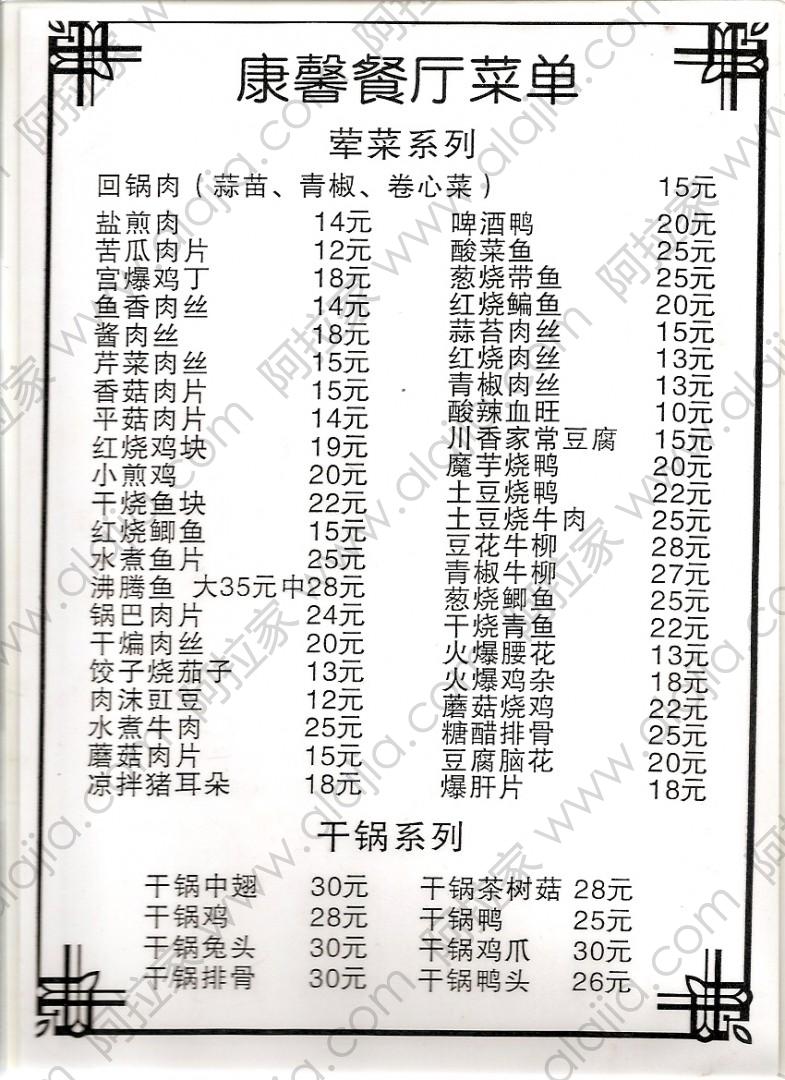 康馨餐厅菜单
荤菜系列
回锅肉（蒜苗、青椒、卷心菜） 15元
盐煎肉 14元
苦瓜肉片 12元
宫爆鸡丁 18元
鱼香肉丝 14元
酱肉丝 18元
芹菜肉丝 15元
香菇肉片 15元
平菇肉片 14元
红烧鸡块 19元
小煎鸡 20元
干烧鱼块 22元
红烧鲫鱼 15元
水煮鱼片 25元
沸腾鱼 大35元中28元
锅巴肉片 24元
干煸肉丝 20元
饺子烧茄子 13元
肉沫豇豆 12元
水煮牛肉 25元
蘑菇肉片 15元
凉拌猪耳朵 18元
啤酒鸭 20元
酸菜鱼 25元
葱烧带鱼 25元
红烧鳊鱼 20元
蒜苔肉丝 15元
红烧肉丝 13元
青椒肉丝 13元
酸辣血旺 10元
川香家常豆腐 15元
魔芋烧鸭 20元
土豆烧鸭 22元
土豆烧牛肉 25元
豆花牛柳 28元
青椒牛柳 27元
葱烧鲫鱼 25元
干烧青鱼 22元
火爆腰花 13元
火爆鸡杂 18元
蘑菇烧鸡 22元
糖醋排骨 25元
豆腐脑花 20元
爆肝片 18元
干锅系列
干锅中翅 30元
干锅鸡 28元
干锅兔头 30元
干锅排骨 30元
干锅茶树菇 28元
干锅鸭 25元
干锅鸡爪 30元
干锅鸭头 26元
阿拉家 www.alajia.com